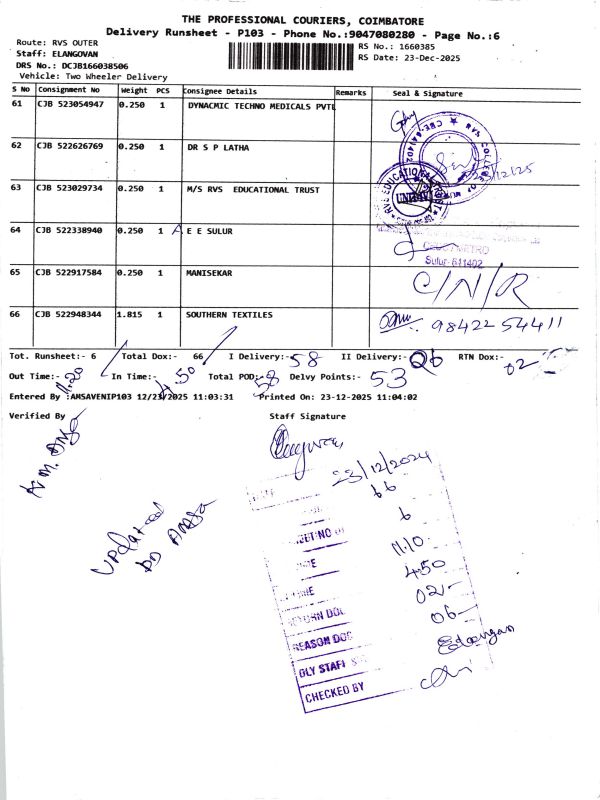 THE PROFESSIONAL COURIERS, COIMBATORE
Delivery Runsheet - P103 - Phone No.:9047080280 - Page No.:6
Route: RVS OUTER
RS No.: 1660385
Staff: ELANGOVAN
RS Date: 23-Dec-2025
DRS No.: DCJB166038506
Vehicle: Two Wheeler Delivery
S No Consignment No Weight PCS Consignee Details Remarks Seal & Signature
61 CJB 523054947 0.250 1 DYNACMIC TECHNO MEDICALS PVTL
62 CJB 522626769 0.250 1 DR S P LATHA
63 CJB 523029734 0.250 1 M/S RVS EDUCATIONAL TRUST
64 CJB 522338940 0.250 1 A E E SULUR
Sulur-641402
65 CJB 522917584 0.250 1 MANISEKAR C/N/R
66 CJB 522948344 1.815 1 SOUTHERN TEXTILES 98422 54411
Tot. Runsheet:- 6 Total Dox:- 66 I Delivery:- 58 II Delivery:- 06 RTN Dox:- 02
Out Time:- 11.20 In Time:- 4.50 Total POD:- 58 Delvy Points:- 53
Entered By :AMSAVENIP103 12/23/2025 11:03:31 Printed On: 23-12-2025 11:04:02
Verified By Staff Signature
23/12/2024
66
6
11.10
4.50
Updated
RETURN DOC 02-
REASON DOC 06-
DLY STAFF Elangovan
CHECKED BY